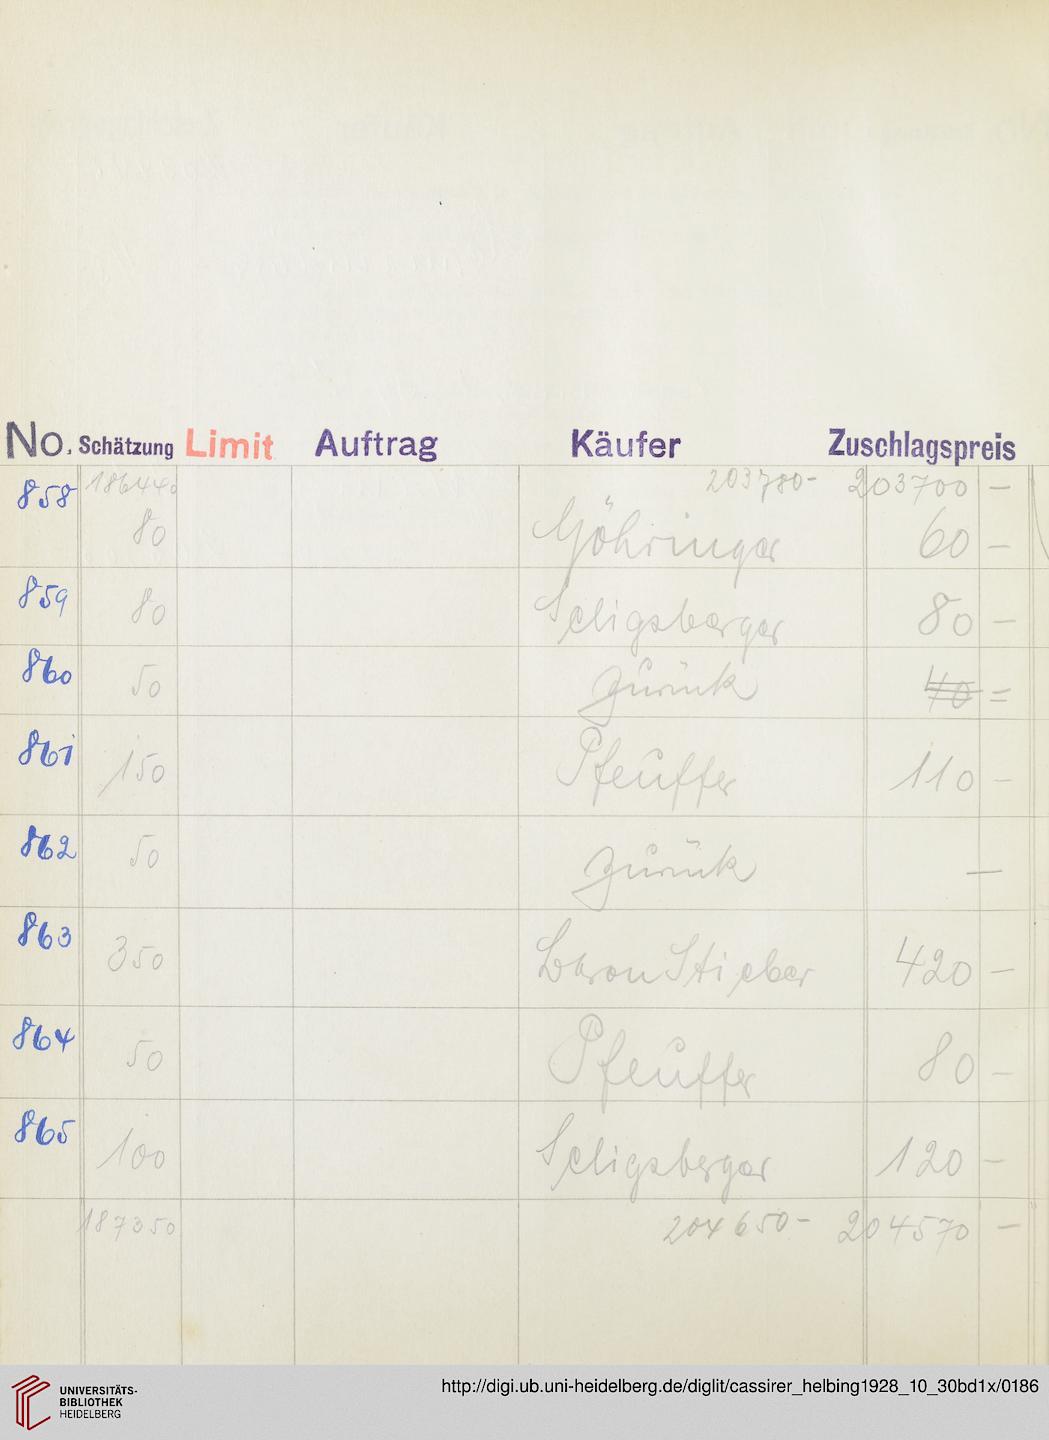 No. Schätzung Limit Auftrag Käufer Zuschlagspreis
186440 203780- 203700 -
858 80 Göhringer 60 -
859 80 Seligsberger 80 -
860 50 Zurück 40 =
861 150 Pfeuffer 110 -
862 50 Zurück -
863 350 Baron Stieber 420 -
864 50 Pfeuffer 80 -
865 100 Seligsberger 120 -
187350 204650- 204570 -
UNIVERSITÄTS-
BIBLIOTHEK
HEIDELBERG
http://digi.ub.uni-heidelberg.de/diglit/cassirer_helbing1928_10_30bd1x/0186